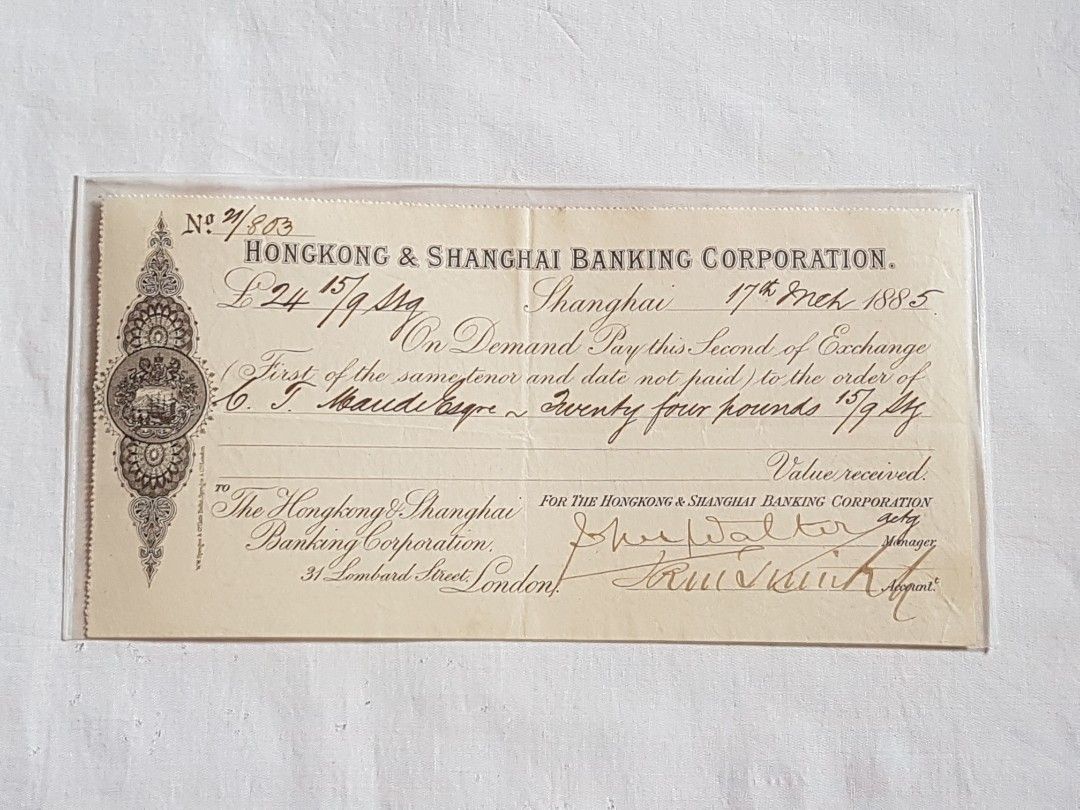 No. 21/803
HONGKONG & SHANGHAI BANKING CORPORATION.
£24 15/9 Stg Shanghai 17th Mch 1885
On Demand Pay this Second of Exchange
(First of the same tenor and date not paid) to the order of
C. T. Maude Esqre ~ Twenty four pounds 15/9 Stg
Value received.
TO
The Hongkong & Shanghai
Banking Corporation,
31 Lombard Street, London.
FOR THE HONGKONG & SHANGHAI BANKING CORPORATION
John Walter actg Manager,
Account.t